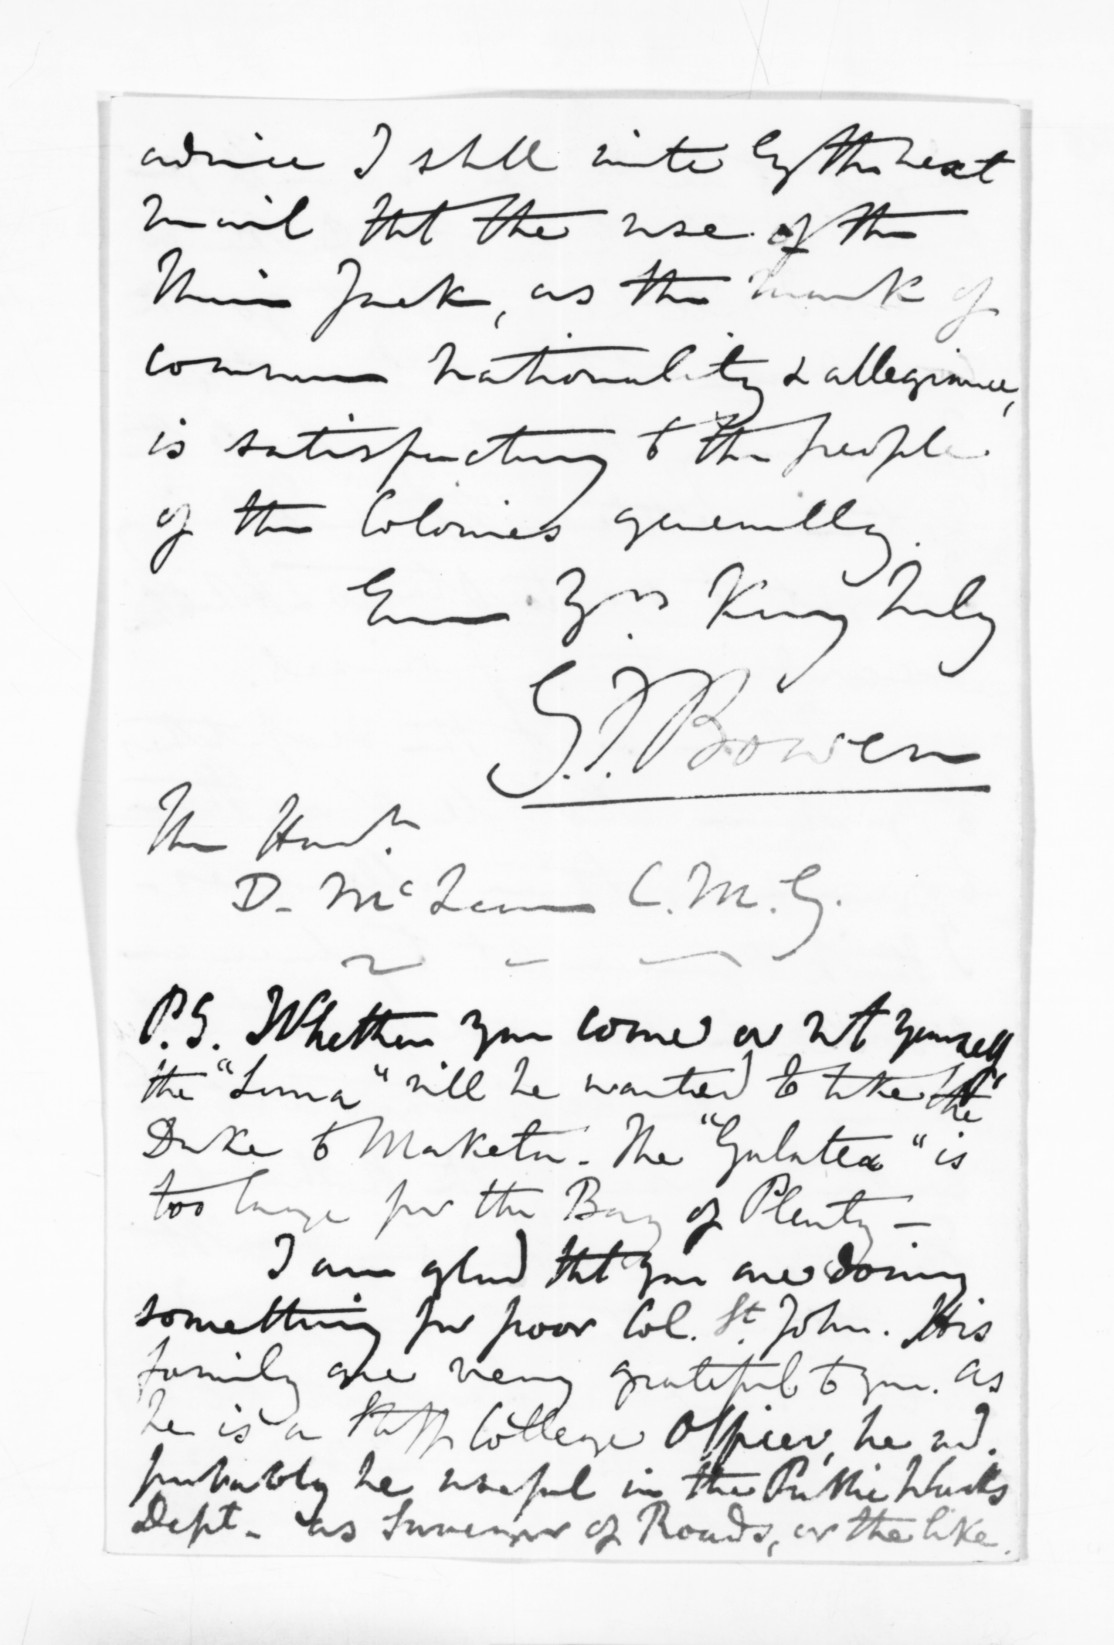 advice I shll write by the next
mail tht the use of the
Union Jack, as the mark of
common nationality & allegiance,
is satisfactory to the people
of the Colonies generally.
Ever Yrs very truly
G.F. Bowen
The Honb.
D. McLean C.M.G.
P.S. Whether you come or not yourself
the "Luna" will be wanted to take the
Duke to Maketu. The "Galatea" is
too large for the Bay of Plenty -
I am glad tht you are doing
something for poor Col. St. John. His
family are very grateful to you. As
he is a Staff College Officer, he wd.
probably be useful in the Public Works
Dept. as Surveyor of Roads, or the like.